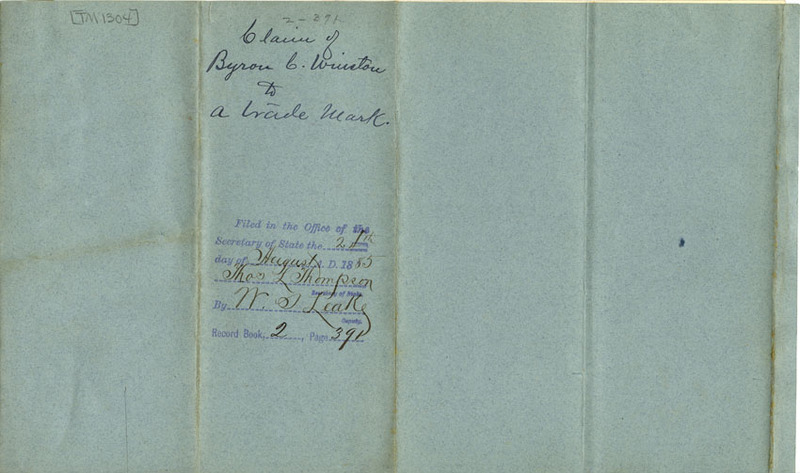 [TM 1304]
2-391
Claim of
Byron C. Winston
to
a Trade Mark.
Filed in the Office of the
Secretary of State the 24th
day of August A.D. 1885
Thos L Thompson
Secretary of State
By W. T. Leake
Deputy.
Record Book, 2, Page 391